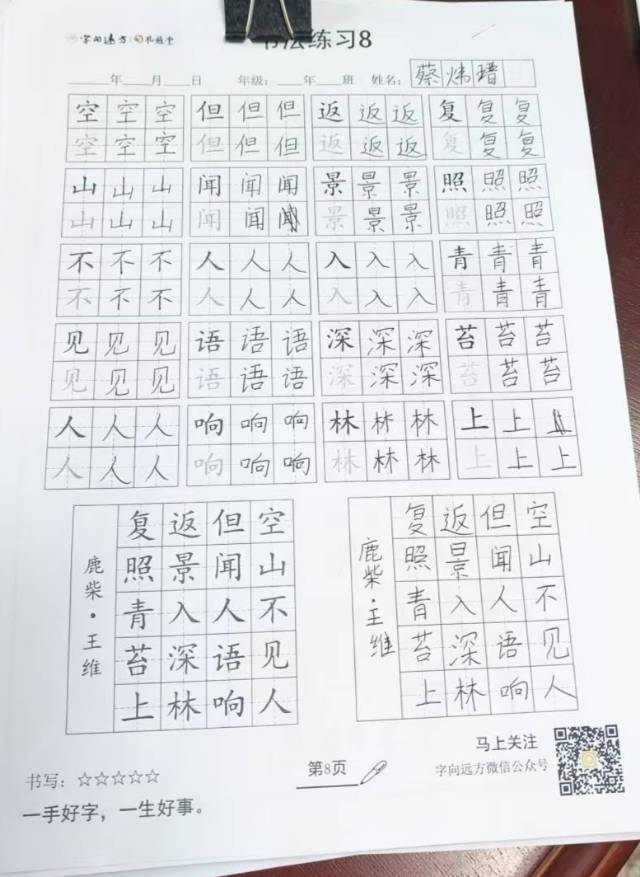 字向远方
书法练习8
年 月 日 年级: 年 班 姓名: 蔡炜瑨
空空空 但但但 返返返 复复复
空空空 但但但 返返返 复复复
山山山 闻闻闻 景景景 照照照
山山山 闻闻闻 景景景 照照照
不不不 人人人 入入入 青青青
不不不 人人人 入入入 青青青
见见见 语语语 深深深 苔苔苔
见见见 语语语 深深深 苔苔苔
人人人 响响响 林林林 上上上
人人人 响响响 林林林 上上上
鹿柴·王维
空山不见人
但闻人语响
返景入深林
复照青苔上
鹿柴·王维
空山不见人
但闻人语响
返景入深林
复照青苔上
书写: ☆☆☆☆☆
一手好字，一生好事。
第8页
马上关注
字向远方微信公众号